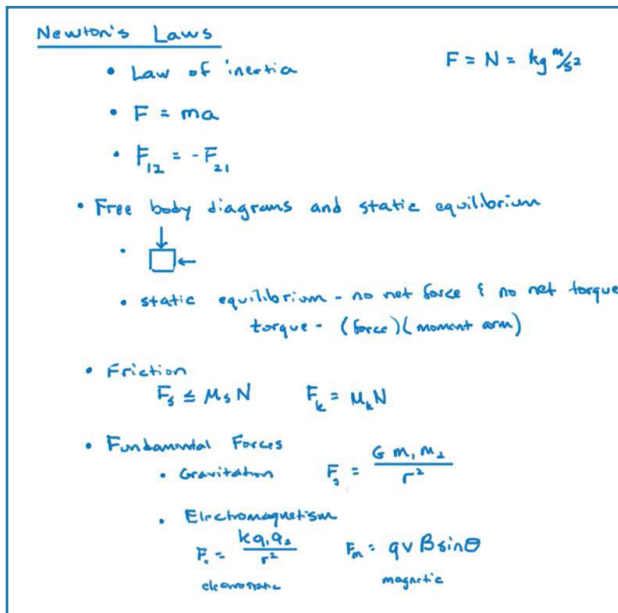 Newton's Laws
F = N = kg m/s²
• Law of inertia
• F = ma
• F₁₂ = -F₂₁
• Free body diagrams and static equilibrium
• static equilibrium - no net force & no net torque
torque - (force)(moment arm)
• Friction
Fₛ ≤ μₛN Fₖ = μₖN
• Fundamental Forces
• Gravitation F = G m₁ m₂ / r²
• Electromagnetism
F = kq₁q₂ / r² Fₘ = qvBsinθ
electrostatic magnetic